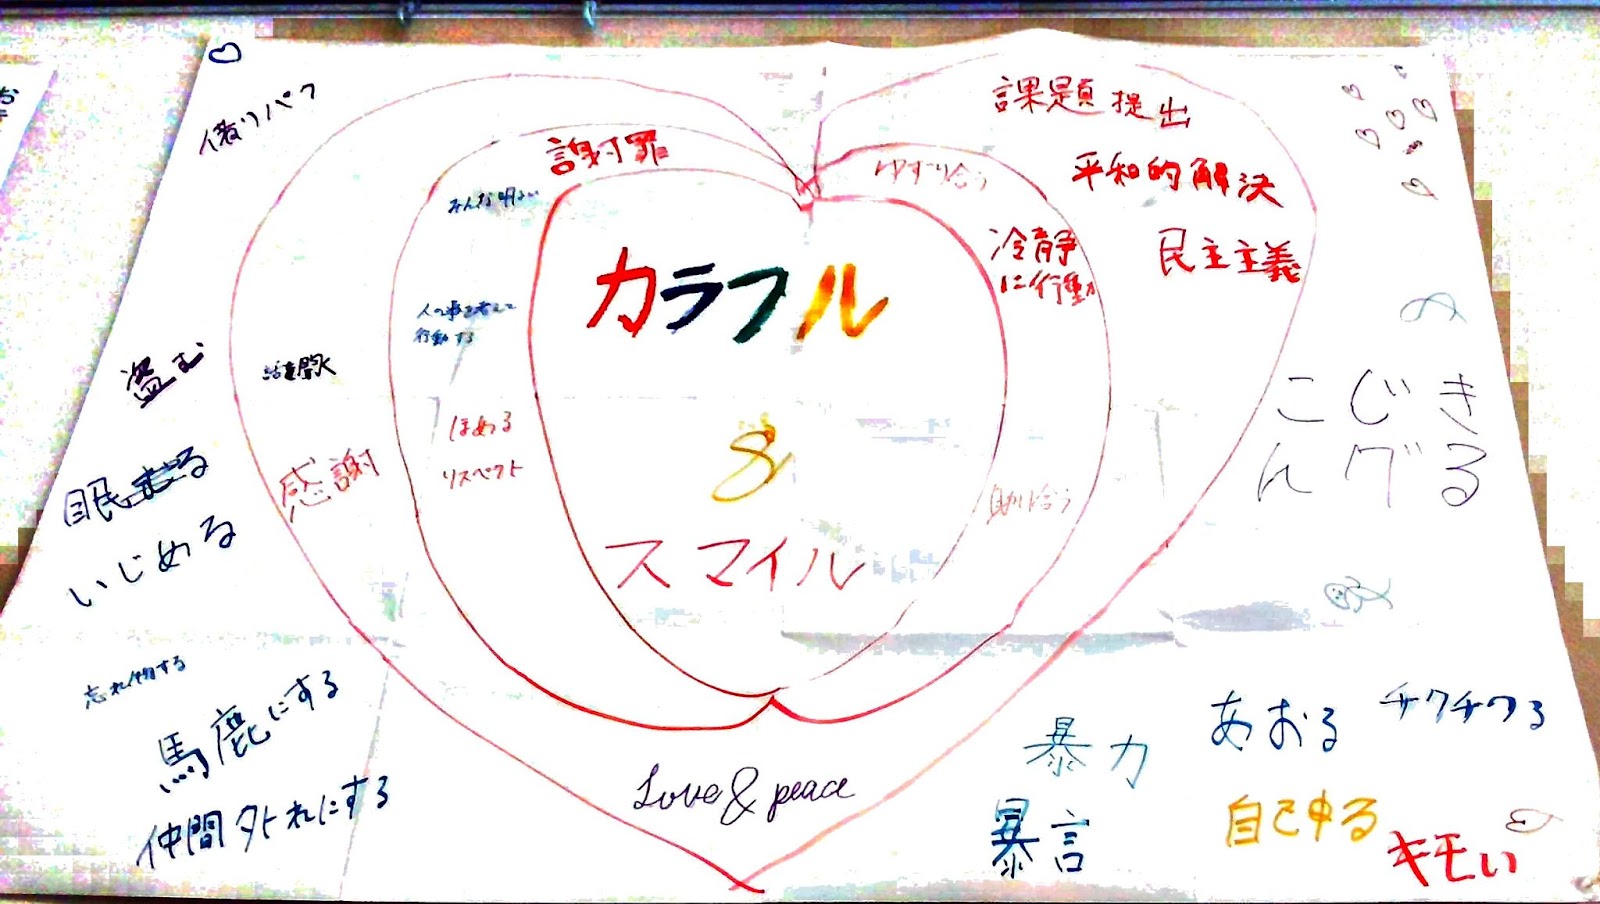 借りパク
謝罪
みんな明るい
課題提出
平和的解決
民主主義
ゆずり合う
冷静
に行動
カラフル
&
スマイル
人の事を考えて
行動する
ほめる
リスペクト
助け合う
話を聞く
感謝
盗む
いじめる
忘れ物する
馬鹿にする
仲間外れにする
Love & peace
こじき
んグる
暴力
暴言
あおる
チクチクる
自己中る
キモい